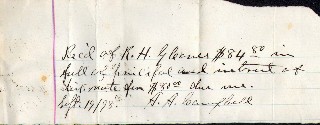 Rec'd of R. H. Gleaves $84 80 in
full of principal and interest of
note for $80 00 due me.
Sept. 19/78
A. A. Campbell